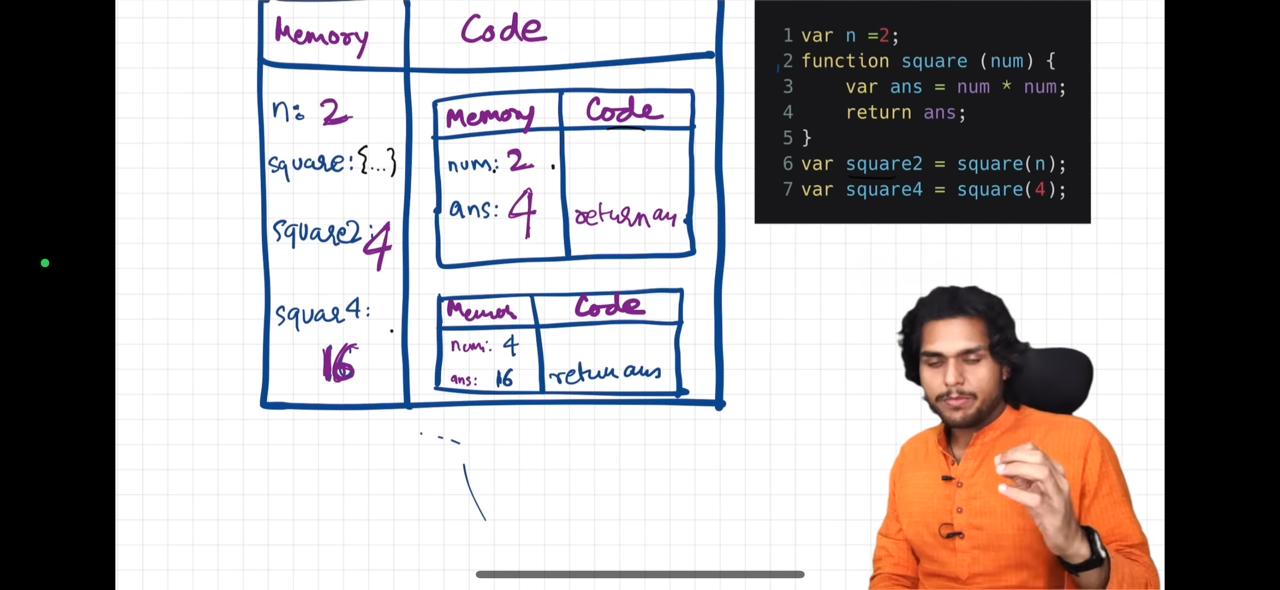 Memory Code
n: 2
square: {...}
square2: 4
squar4:
16
Memory Code
num: 2
ans: 4 return an
Memor Code
num: 4
ans: 16 return ans
1 var n =2;
2 function square (num) {
3 var ans = num * num;
4 return ans;
5 }
6 var square2 = square(n);
7 var square4 = square(4);